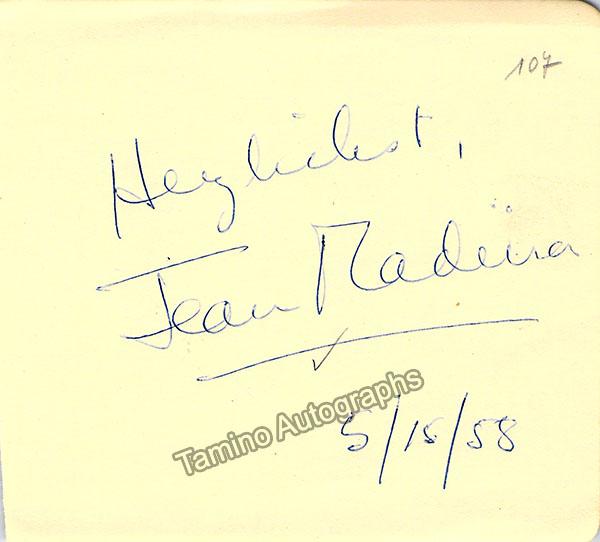 107
Herzlichst,
Jean Madeira
5/15/58
Tamino Autographs